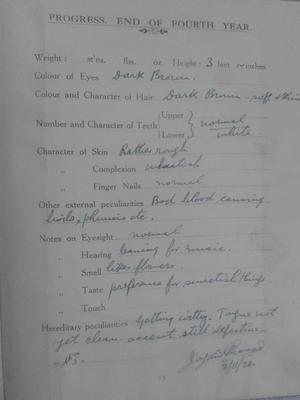 PROGRESS. END OF FOURTH YEAR.
Weight: st'es. lbs. oz. Height: 3 feet ~ inches
Colour of Eyes Dark Brown.
Colour and Character of Hair Dark Brown - soft &
Number and Character of Teeth Upper normal
Lower white
Character of Skin Rather rough
„ Complexion wheatish
„ Finger Nails normal
Other external peculiarities Bad blood causing
boils, etc.
Notes on Eyesight normal
„ Hearing leaning for music.
„ Smell likes flowers.
„ Taste preference for sweetish things
„ Touch
Hereditary peculiarities Getting witty. Tongue not
yet clean. accent still defective.